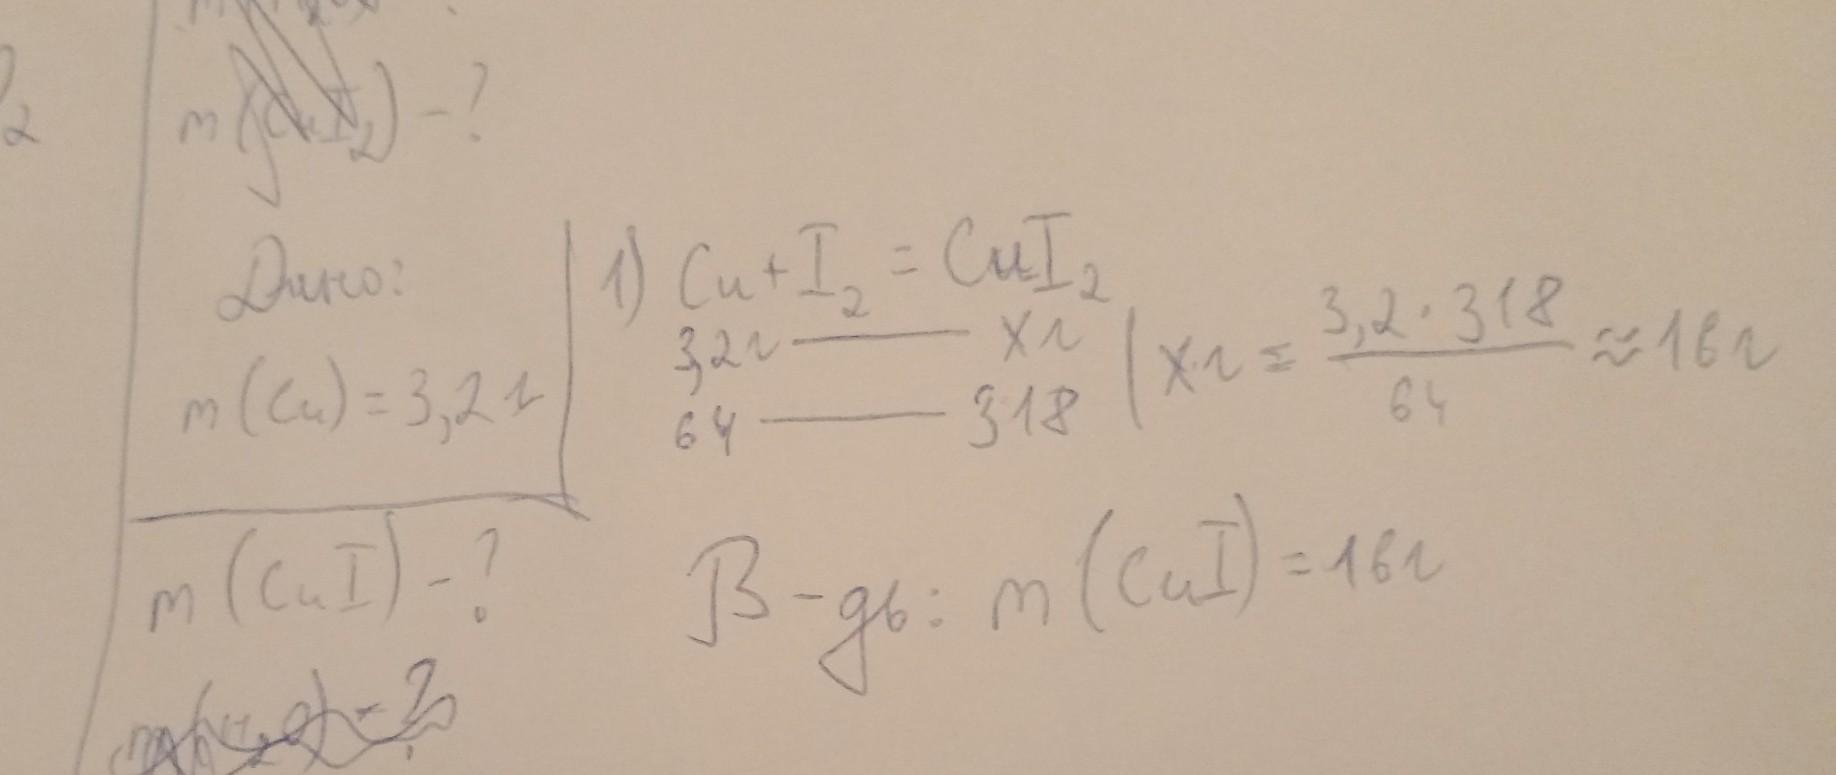 2
m(CuI₂) - ?
Дано:
m(Cu) = 3,2 г
m(CuI) - ?
1) Cu + I₂ = CuI₂
3,2г — x г
64 — 318
x г = 3,2 · 318 / 64 ≈ 16 г
В-дь: m(CuI) = 16 г